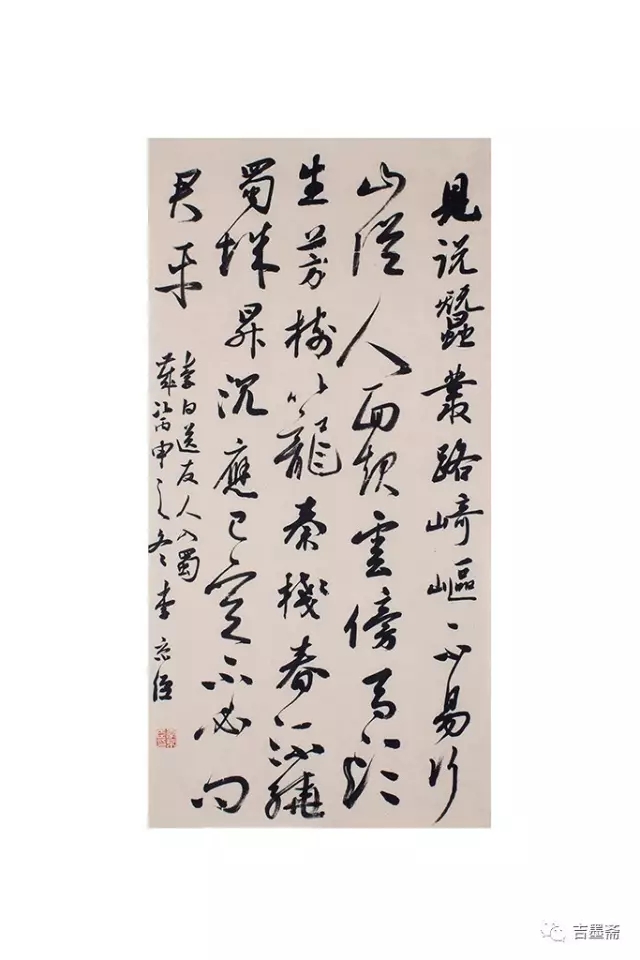 見說蠶叢路崎嶇不易行
山從人面起雲傍馬頭
生芳樹籠秦棧春流繞
蜀城昇沉應已定不必問
君平
李白送友人入蜀
歲丙申之冬李
吉墨斋